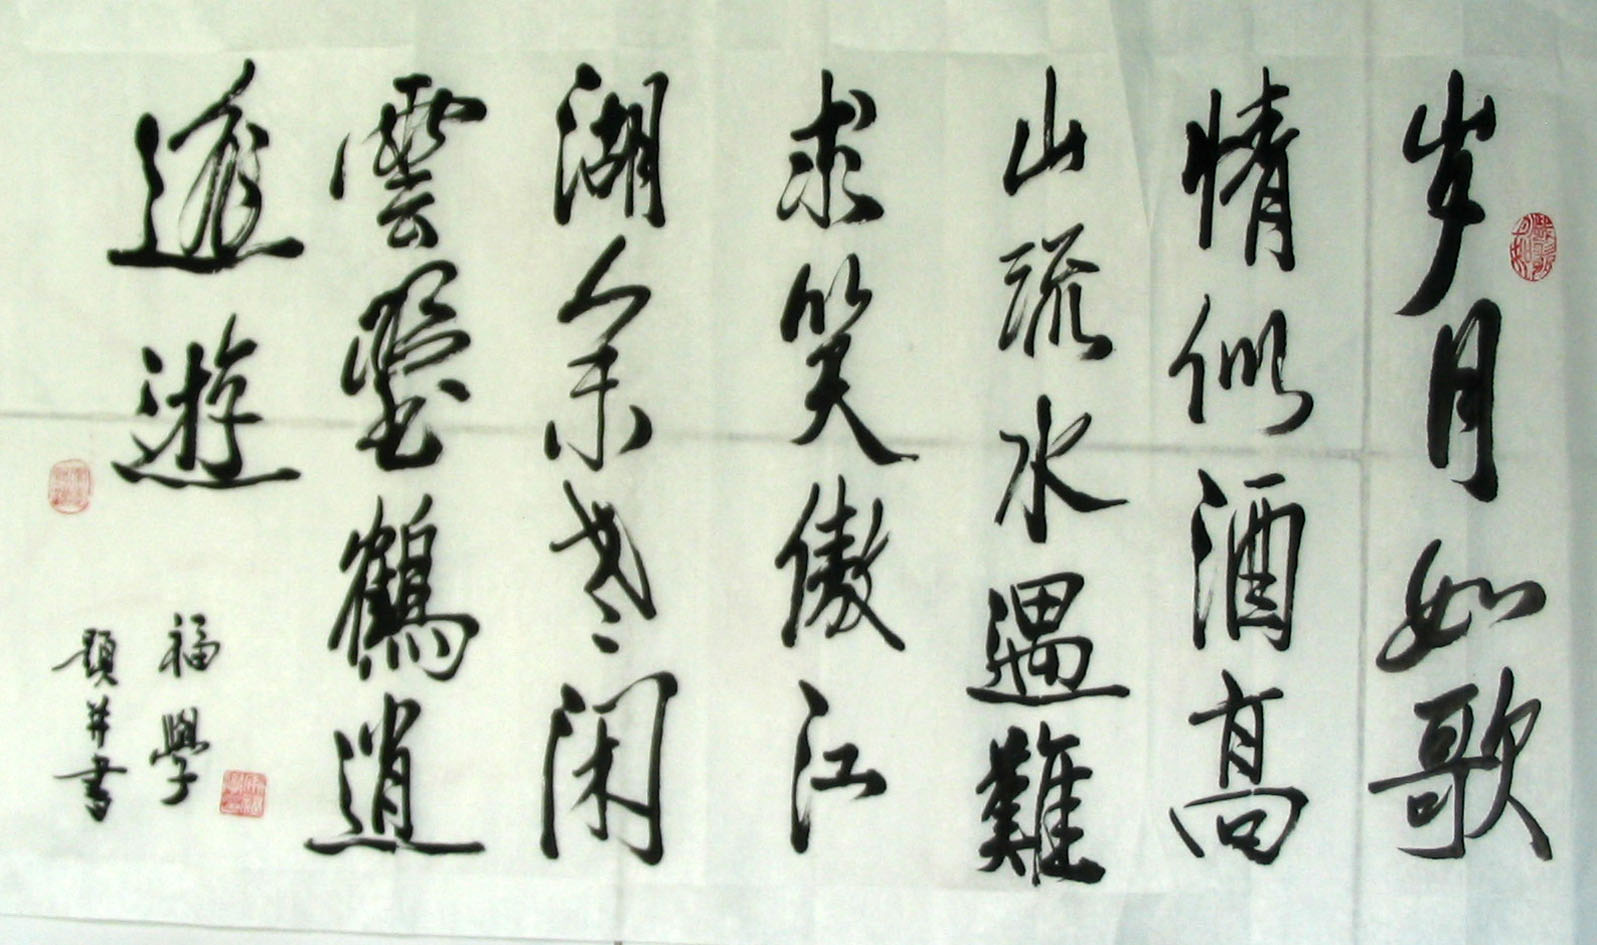 岁月如歌
情似酒高
山流水遇難
求笑傲江
湖人未老闲
雲野鶴逍
遥遊
福學
題并書